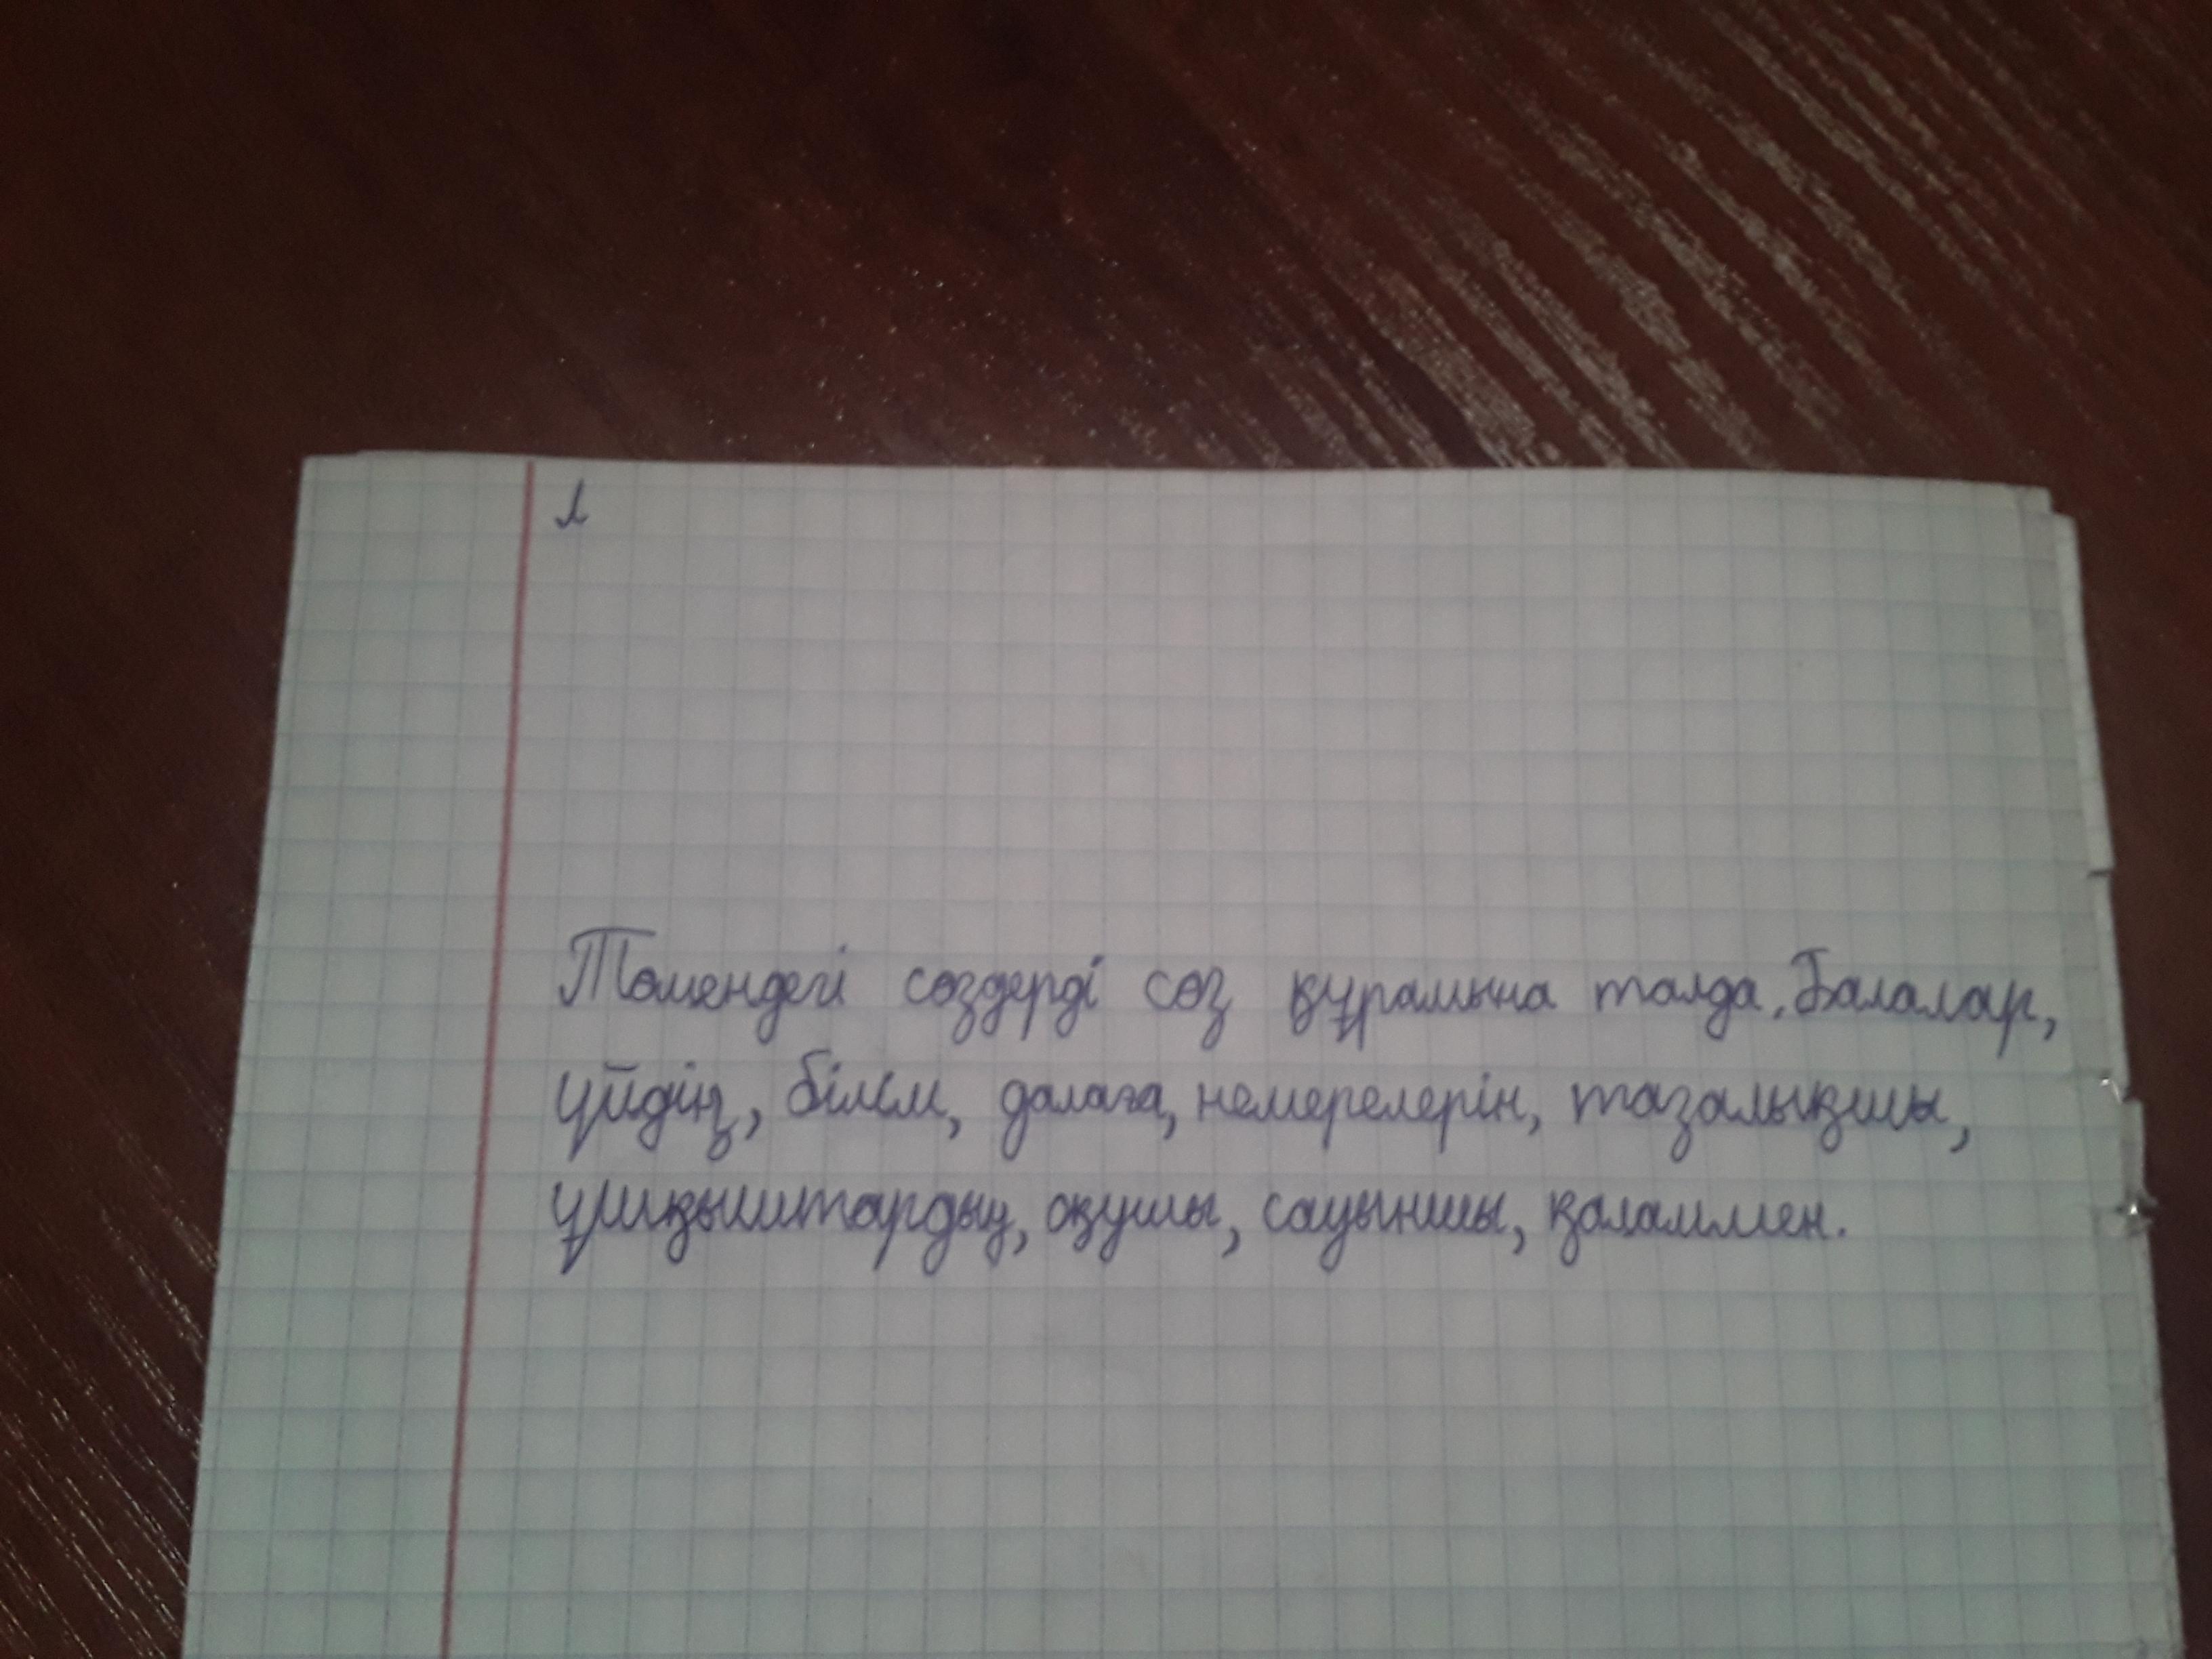 Төмендегі сөздерді сөз құрамына талда. Балалар,
үйдің, білім, далаға, немерелерін, тазалықшы,
ұшқыштардың, оқушы, сауыншы, қаламмен.